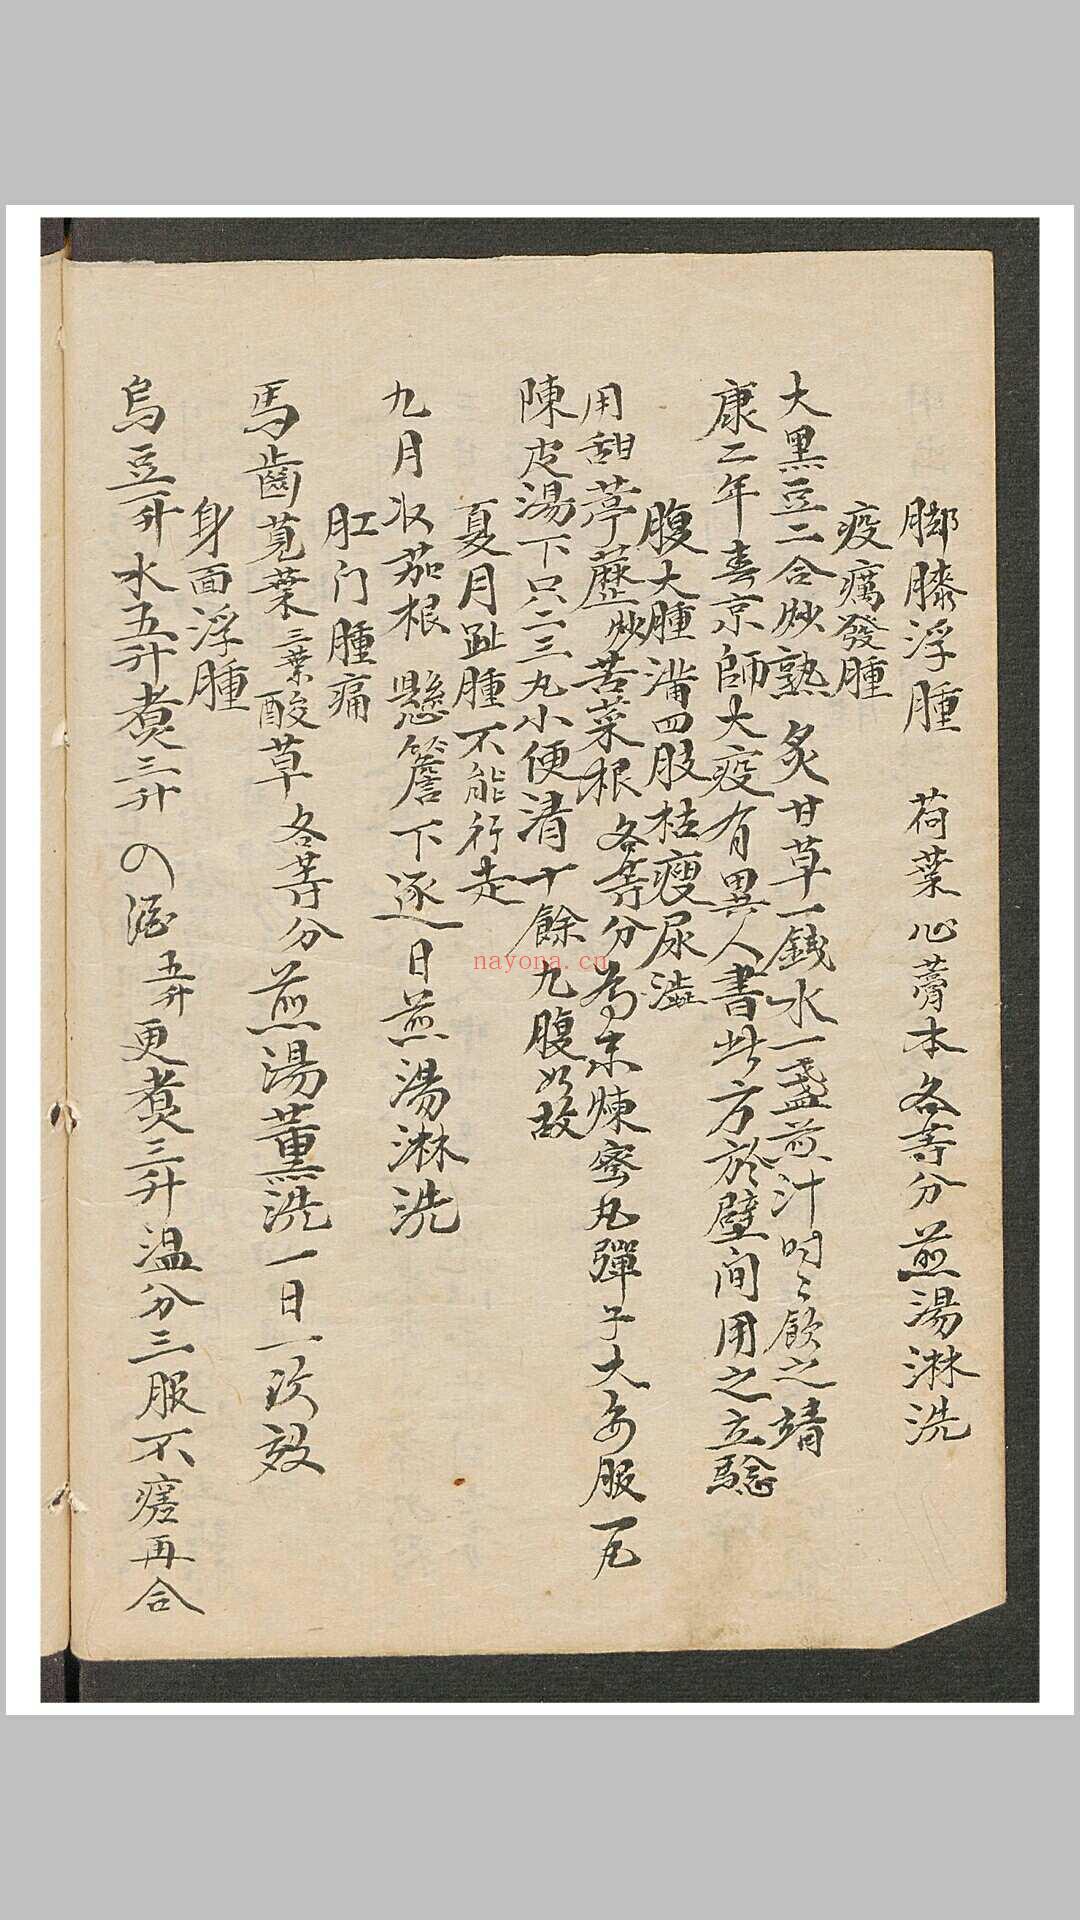 脚膝浮腫 荷葉心藁本各等分煎湯淋洗
疫癘發腫
大黑豆二合炒熟炙甘草一錢水一盞煎汁时〻飲之靖
康二年春京師大疫有異人書此方於壁间用之立驗
腹大腫滿四肢枯瘦尿澁
用甜葶藶炒苦菜根各等分為末煉蜜丸彈子大每服一丸
陳皮湯下只二三丸小便清十餘丸腹如故
夏月趾腫不能行走
九月收茄根懸簷下逐日煎湯淋洗
肛门腫痛
馬齒莧葉三葉酸草各等分煎湯薰洗一日一次效
身面浮腫
烏豆一升水五升煮三升の酒五升更煮三升温分三服不瘥再合
nayona.cn